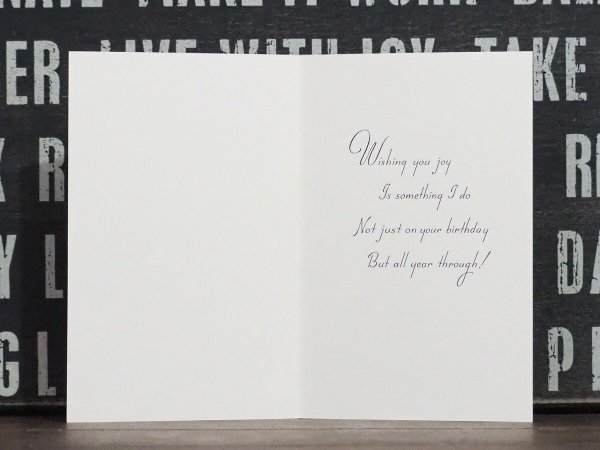 MAKE IT WORK
LIVE WITH JOY TAKE
Wishing you joy
Is something I do
Not just on your birthday
But all year through!